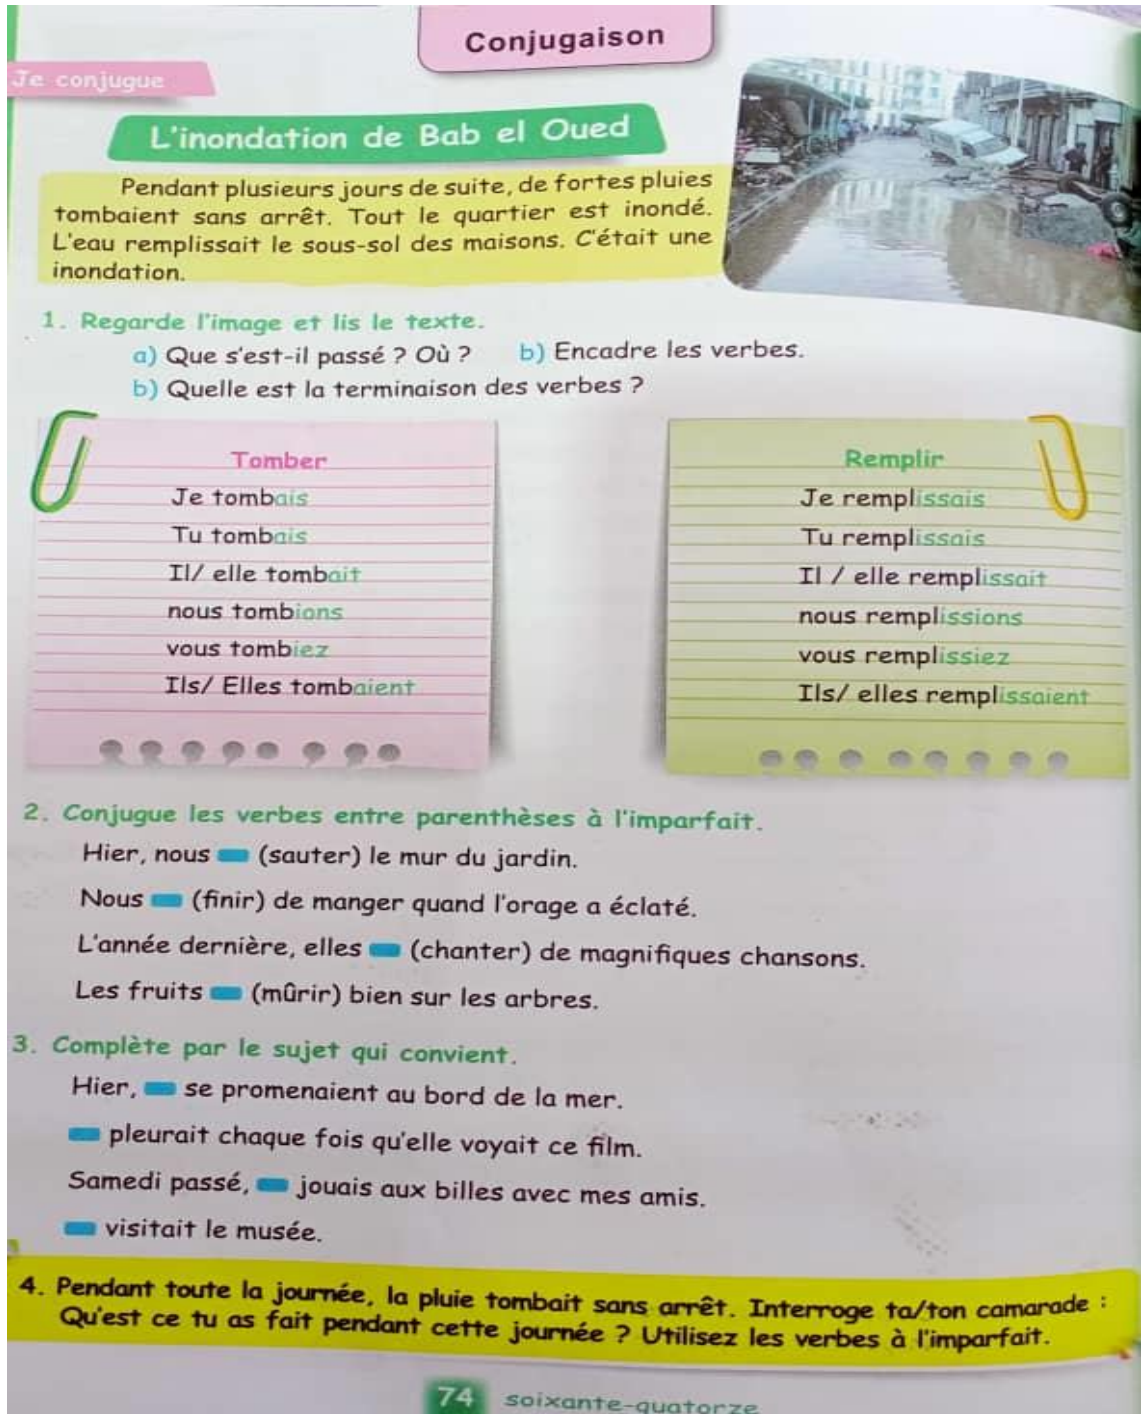 Conjugaison
Je conjugue
L'inondation de Bab el Oued
Pendant plusieurs jours de suite, de fortes pluies
tombaient sans arrêt. Tout le quartier est inondé.
L'eau remplissait le sous-sol des maisons. C'était une
inondation.
1. Regarde l'image et lis le texte.
a) Que s'est-il passé ? Où ? b) Encadre les verbes.
b) Quelle est la terminaison des verbes ?
Tomber
Je tombais
Tu tombais
Il/ elle tombait
nous tombions
vous tombiez
Ils/ Elles tombaient
Remplir
Je remplissais
Tu remplissais
Il / elle remplissait
nous remplissions
vous remplissiez
Ils/ elles remplissaient
2. Conjugue les verbes entre parenthèses à l'imparfait.
Hier, nous (sauter) le mur du jardin.
Nous (finir) de manger quand l'orage a éclaté.
L'année dernière, elles (chanter) de magnifiques chansons.
Les fruits (mûrir) bien sur les arbres.
3. Complète par le sujet qui convient.
Hier, se promenaient au bord de la mer.
pleurait chaque fois qu'elle voyait ce film.
Samedi passé, jouais aux billes avec mes amis.
visitait le musée.
4. Pendant toute la journée, la pluie tombait sans arrêt. Interroge ta/ton camarade :
Qu'est ce tu as fait pendant cette journée ? Utilisez les verbes à l'imparfait.
74 soixante-quatorze